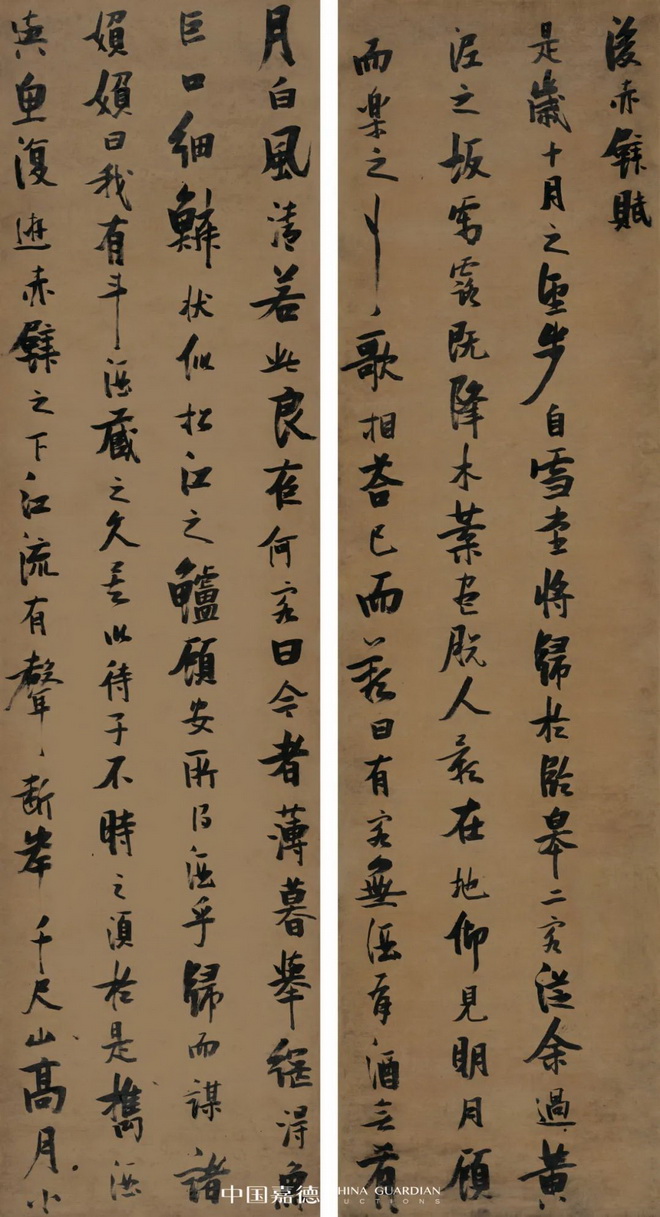 後赤壁賦
是歲十月之望步自雪堂將歸於臨皋二客從余過黃
泥之坂霜露既降木葉盡脫人影在地仰見明月顧
而樂之行歌相答已而歎曰有客無酒有酒無肴
月白風清若此良夜何客曰今者薄暮舉網得魚
巨口細鱗狀似松江之鱸顧安所得酒乎歸而謀諸
婦婦曰我有斗酒藏之久矣以待子不時之須於是攜酒
與魚復遊赤壁之下江流有聲斷岸千尺山高月小
中国嘉德
CHINA GUARDIAN
AUCTIONS